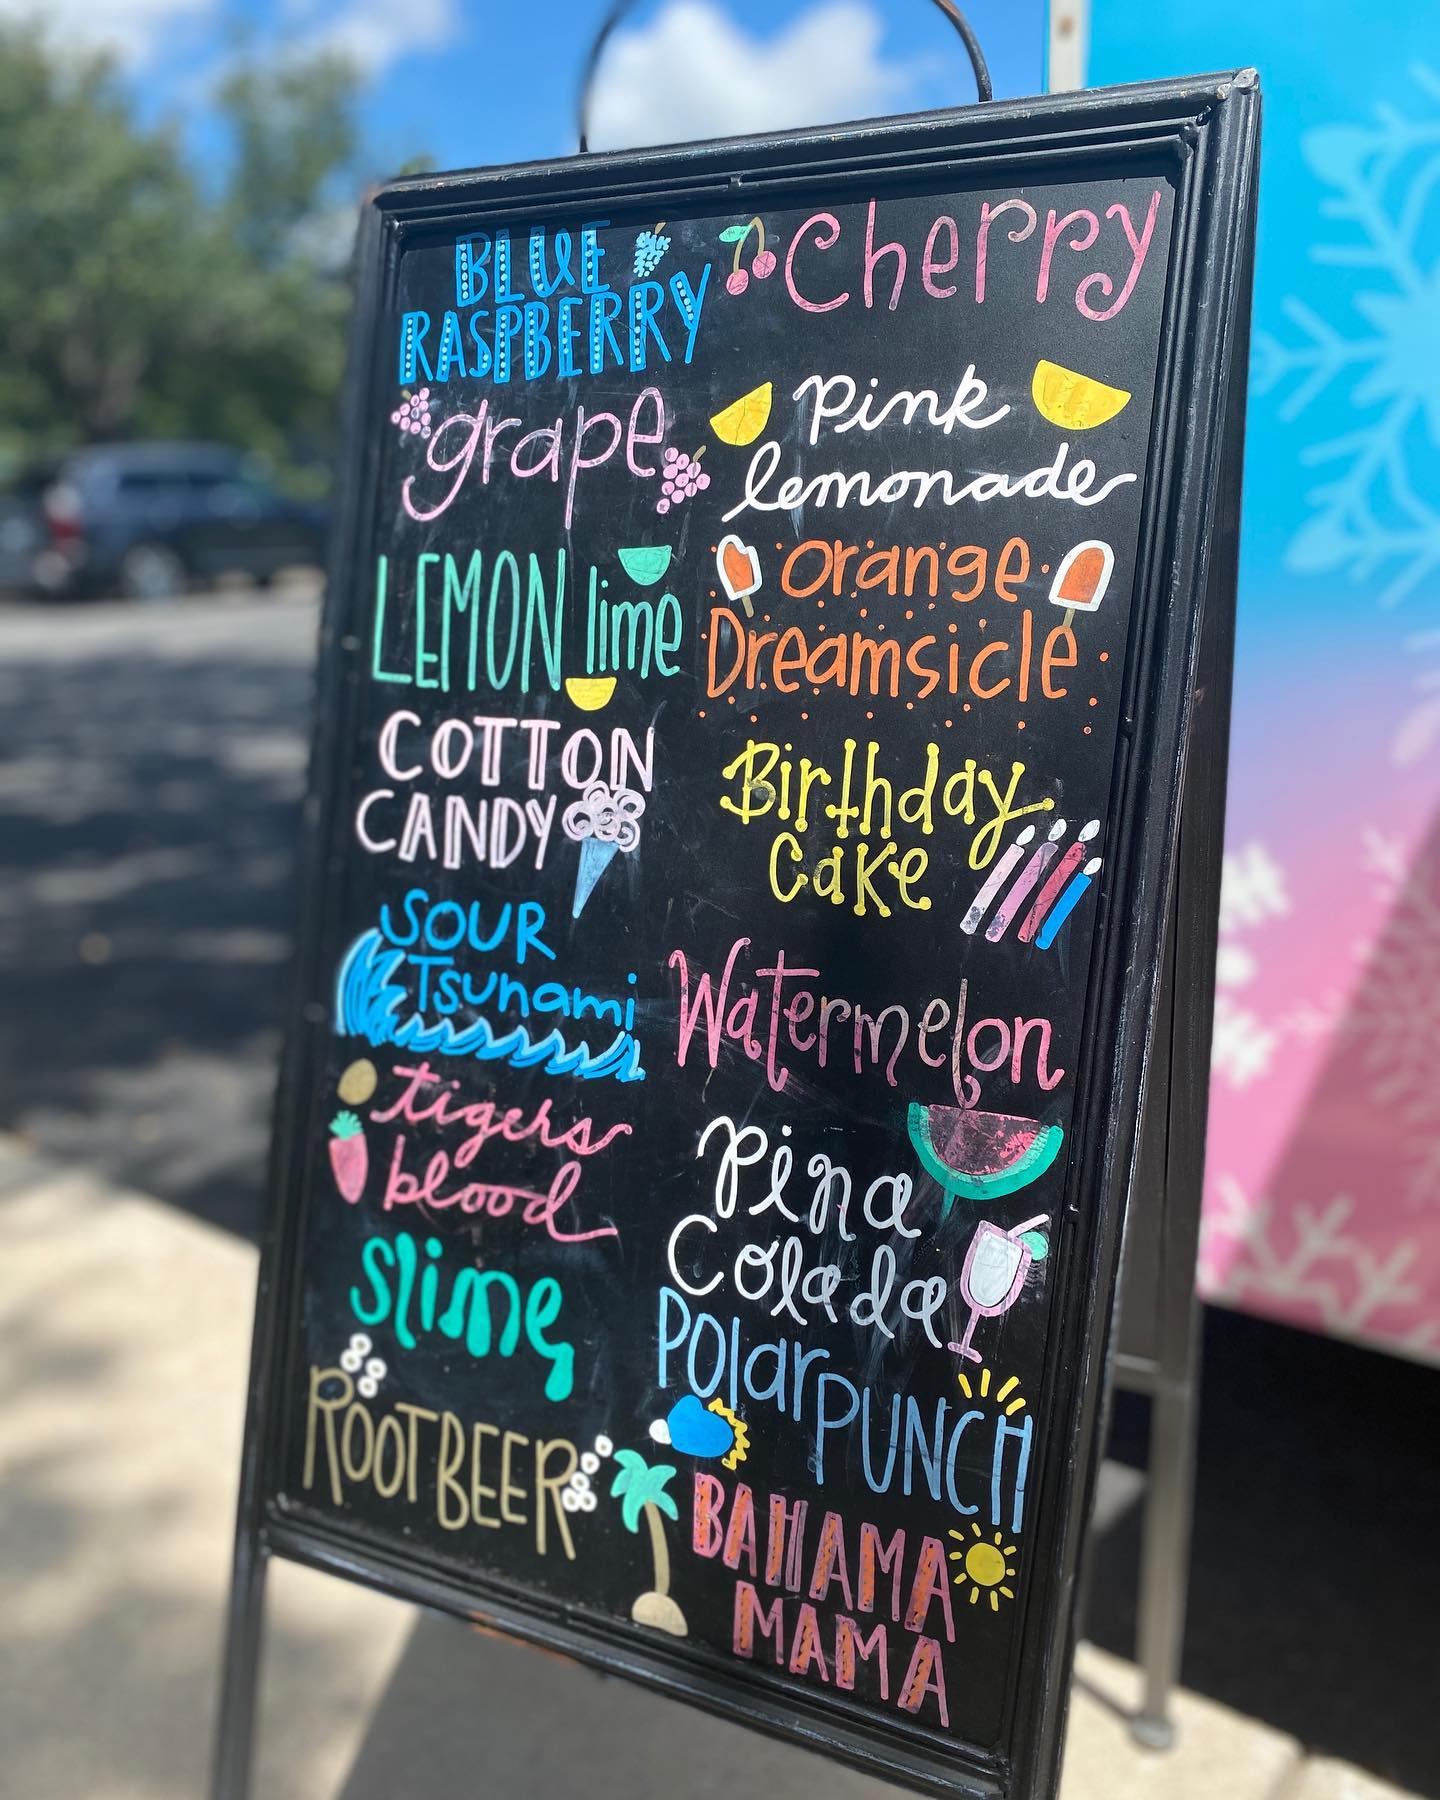 BLUE
RASPBERRY
grape
LEMON lime
COTTON
CANDY
SOUR
Tsunami
tigers
blood
slime
ROOTBEER
Cherry
pink
lemonade
orange
Dreamsicle
Birthday
Cake
Watermelon
Pina
Colada
Polar PUNCH
BAHAMA
MAMA